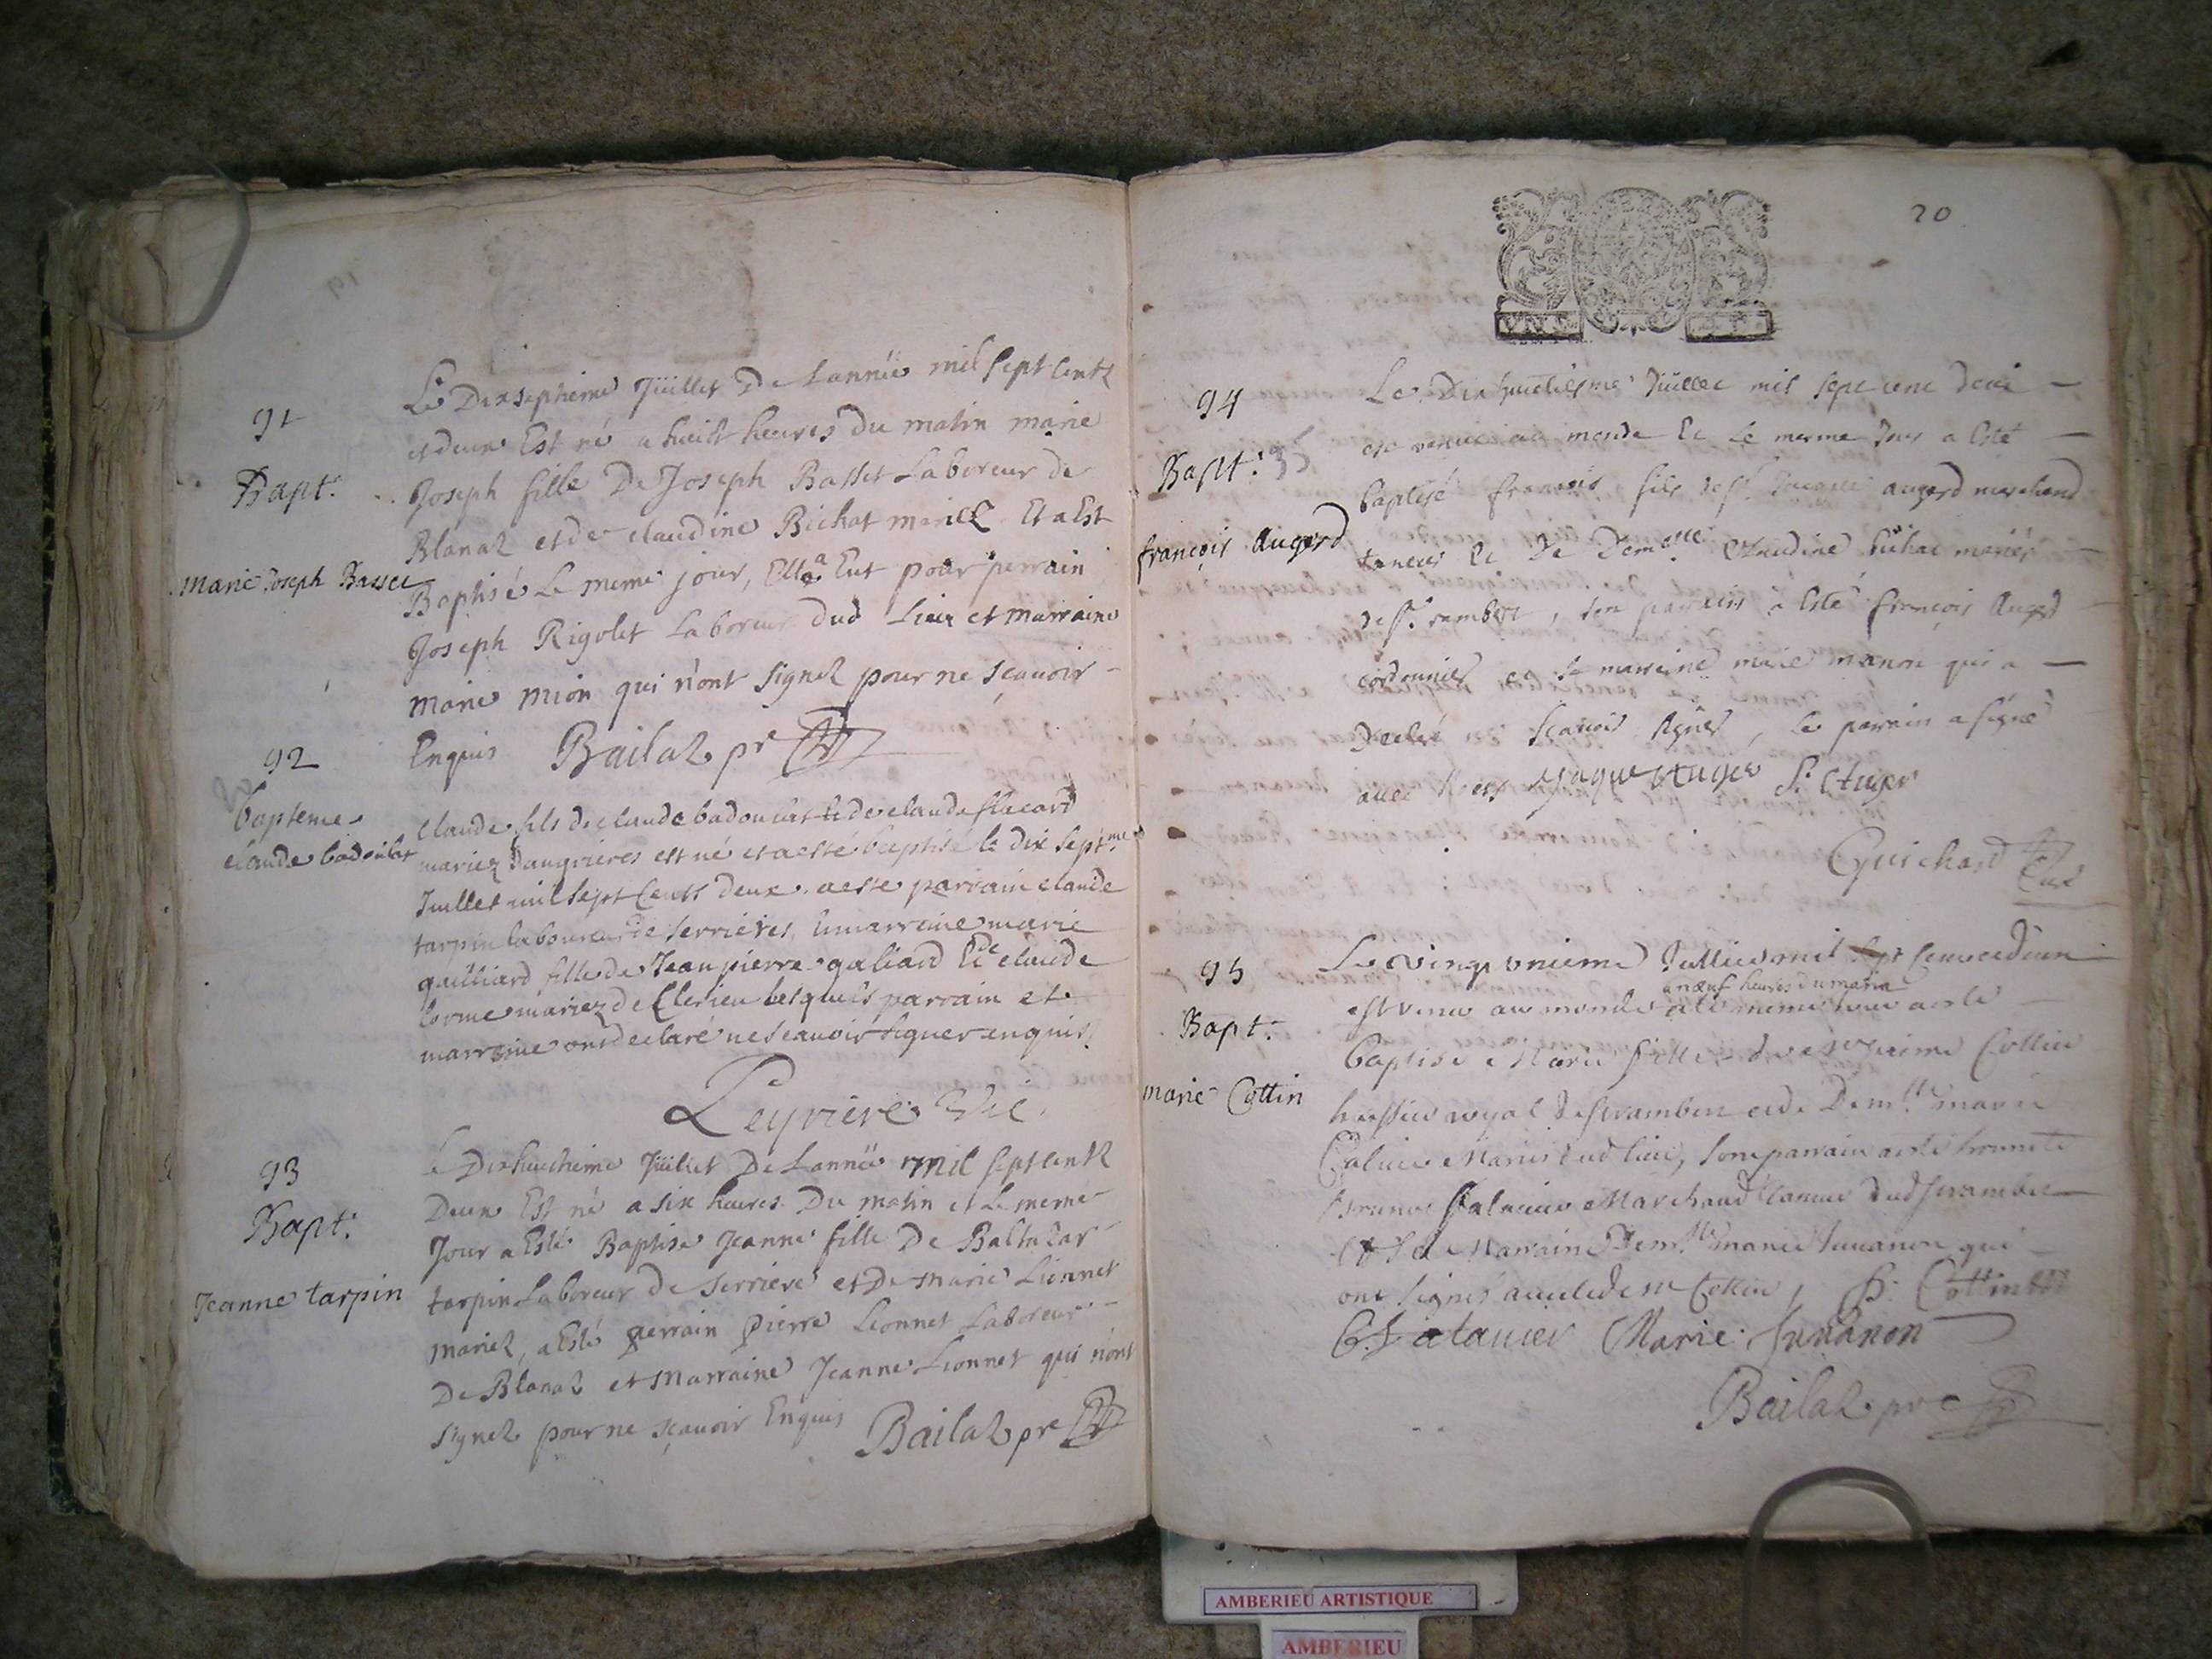 91
Bapt.
Marie Joseph Basset
Le Dixseptieme Juillet De Lannée mil sept centz
et deux Est né a huict heures du matin marie
Joseph fille De Joseph Basset Laboreur de
Blanaz et de claudine Bichat mariez Et a Est
Baptisé Le meme jour, Elle a Eut pour perrain
Joseph Rigolet Laboreur dud Lieu et marraine
marie mion qui n'ont signez pour ne sçavoir
Enquis Bailaz pr
92
bapteme
claude badoulat
claude fils de claude badoulat et de claude flecard
mariez Daugrieres est né et a esté baptisé le dix sept.me
Juillet mil sept Cents deux. a esté parrain claude
tarpin laboureur de serrieres, la marraine marie
guilliard fille de Jean pierre galiard Et de claude
lorme mariez de Clerieu lesquels parrain et
marraine ont declaré ne scauoir signer enquis.
Leyriere Vic.
93
Bapt.
Jeanne tarpin
Le Dixhuictieme Juillet De Lannée mil sept centz
Deux Est né a six heures Du matin et Le meme
Jour a Esté Baptisé Jeanne fille De Baltazar
tarpin Laboreur de Serriere et De marie Lionnet
mariez, a Esté perrain pierre Lionnet Laboreur
De Blanaz et Marraine Jeanne Lionnet qui n'ont
signez pour ne sçavoir Enquis Bailaz pr
20
94
Bapt. 35
françois Augerd
Le Dix huictiesme Juillet mil sept cent deux
est venu au monde Et Le mesme Jour a Esté
baptisé françois fils de Sr. Jacque augerd marchand
taneur Et De Demoselle Claudine Bichat mariés
de St. rambert, son parrain a Esté françois Augerd
cordonnier et sa marraine marie manon qui a
Declaré sçavoir signer, Le parrain a signé
avec Jaque Auger F. Auger
Guichard Curé
95
Bapt.
Marie Cottin
Le vingt unieme Juillet mil sept cent et deux
a neuf heures du matin
est venu au monde et le meme jour a esté
baptisé Marie fille de Cottin
huissier royal de St rambert et de Dem.lle marie
mariés dud lieu, son parrain a esté honneste
Marchand tanneur dud St rambert
Et sa Marraine Dem.lle marie Juvanon qui
ont signés avec led sr Cottin, Cottin
Marie Juvanon
Bailaz pr
AMBERIEU ARTISTIQUE
AMBERIEU